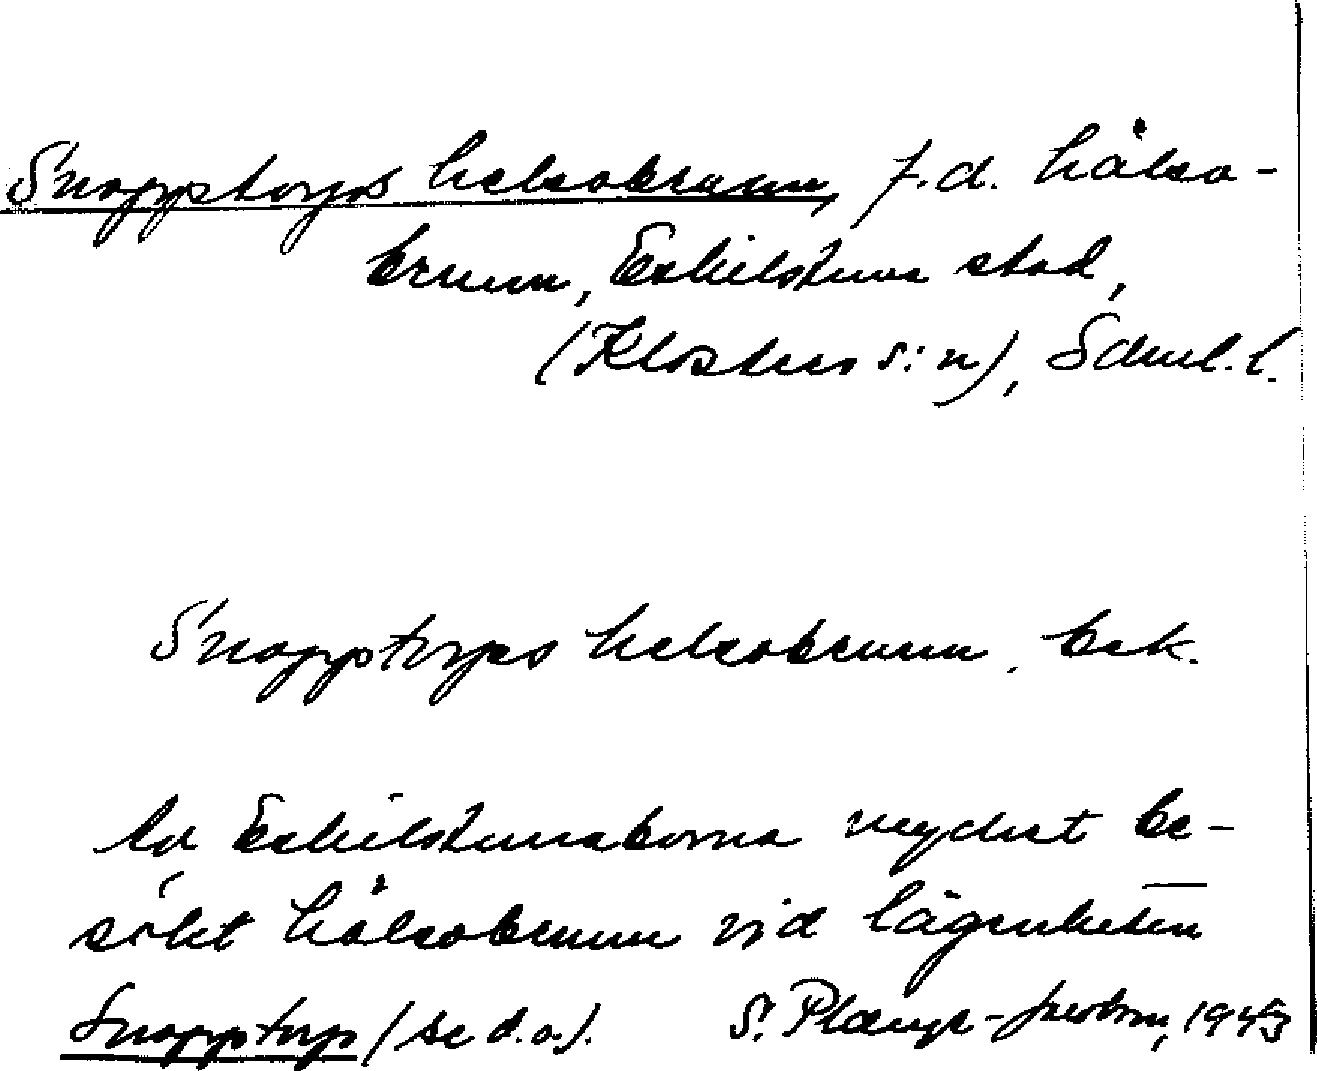 Snopptorps helsobrunn, f.d. hälso-
brunn, Eskilstuna stad,
(Klosters s:n), Söderml. l.
Snopptorps helsobrunn, bek.
av Eskilstunaborna mycket be-
sökt hälsobrunn vid lägenheten
Snopptorp (se d.o.). S. 1943